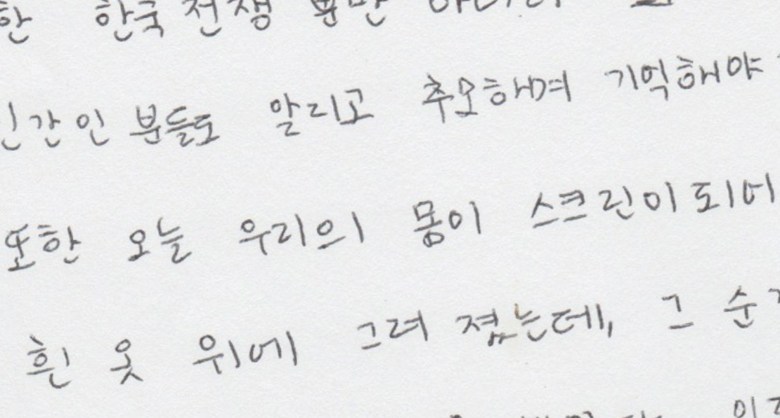 한 한국 전쟁 뿐만
민간인 분들도 알리고 추모해며 기억해야
또한 오늘 우리의 몸이 스크린이 되어
흰 옷 위에 그려 졌는데, 그 순